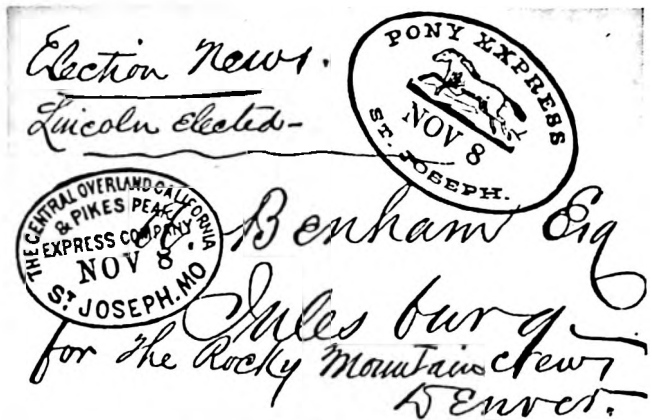 Election News.
Lincoln elected-
PONY EXPRESS
NOV 8
ST. JOSEPH.
THE CENTRAL OVERLAND CALIFORNIA
& PIKES PEAK
EXPRESS COMPANY
NOV 8.
ST JOSEPH. MO
Benham Esq
Julesburg
for The Rocky Mountain News
Denver.